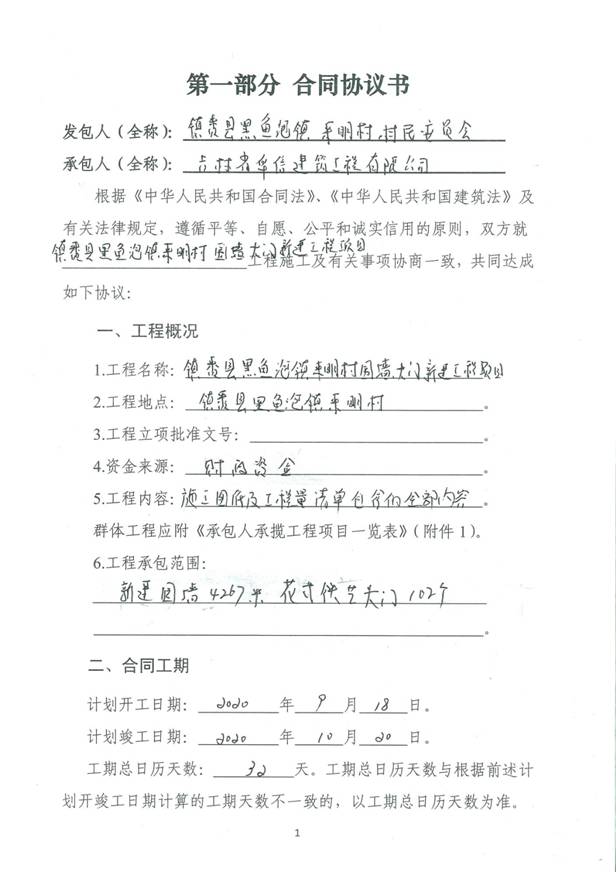 第一部分 合同协议书
发包人（全称）：镇赉县黑鱼泡镇来明村村民委员会
承包人（全称）：吉林省华信建筑工程有限公司
根据《中华人民共和国合同法》、《中华人民共和国建筑法》及
有关法律规定，遵循平等、自愿、公平和诚实信用的原则，双方就
镇赉县黑鱼泡镇来明村围墙大门新建工程项目工程施工及有关事项协商一致，共同达成
如下协议：
一、工程概况
1.工程名称：镇赉县黑鱼泡镇来明村围墙大门新建工程项目
2.工程地点：镇赉县黑鱼泡镇来明村。
3.工程立项批准文号：。
4.资金来源：财政资金。
5.工程内容：施工图纸及工程量清单包含的全部内容。
群体工程应附《承包人承揽工程项目一览表》（附件 1）。
6.工程承包范围：
新建围墙4267米 花寸铁艺大门102个
。
二、合同工期
计划开工日期：2020年9月18日。
计划竣工日期：2020年10月20日。
工期总日历天数：32天。工期总日历天数与根据前述计
划开竣工日期计算的工期天数不一致的，以工期总日历天数为准。
1